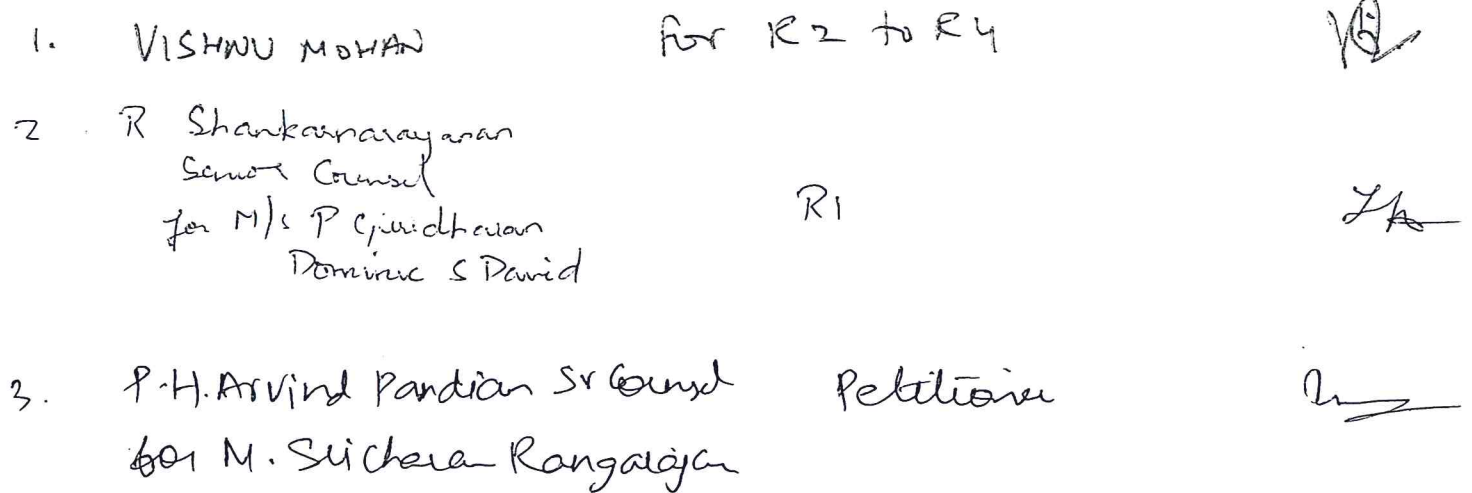 1. VISHNU MOHAN for R2 to R4
2. R Shankarnarayanan R1
Senior Counsel
for M/s P Giridharan
Dominic S David
3. P.H. Arvind Pandian Sr Counsel Petitioner
for M. Sricharan Rangarajan